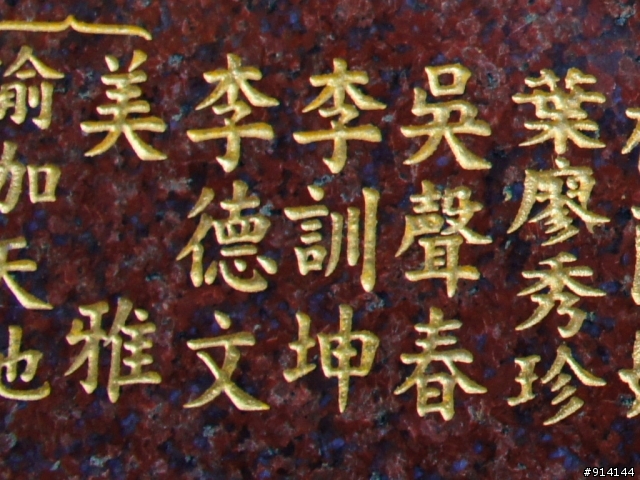 葉廖秀珍
吳聲春
李訓坤
李德文
美雅
瑜加天地
#914144